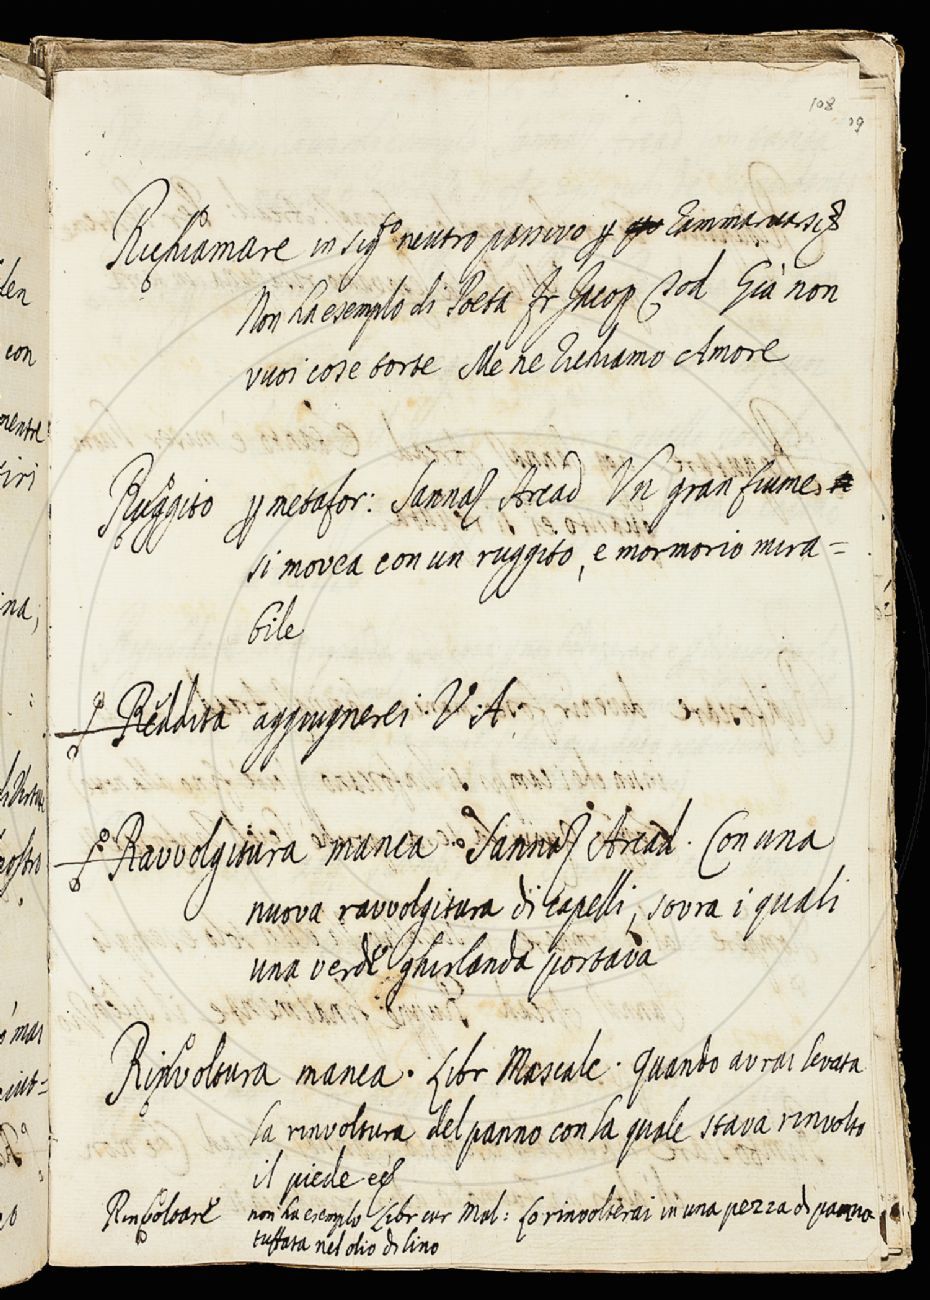 108
09
Richiamare in sigo neutro passivo p Rammaricarsi
Non ha esemplo di Poeta Fr Jacop Tod Già non
vuoi cose torte Me ne richiamo Amore
Ruggito p metafor: Sannaz Arcad Un gran fiume
si movea con un ruggito, e mormorio mira=
bile
Reddita aggiugnerei V. A
Ravvolgitura manca. Sannaz Arcad. Con una
nuova ravvolgitura di capelli, sovra i quali
una verde ghirlanda portava
Rinvoltura manca. Libr Mascalc. Quando avrai levata
la rinvoltura del panno con la quale stava rinvolto
il piede ec
Rinvoltare non ha esemplo Libr cur Mal: Lo rinvolterai in una pezza di panno
tuffata nel olio di lino